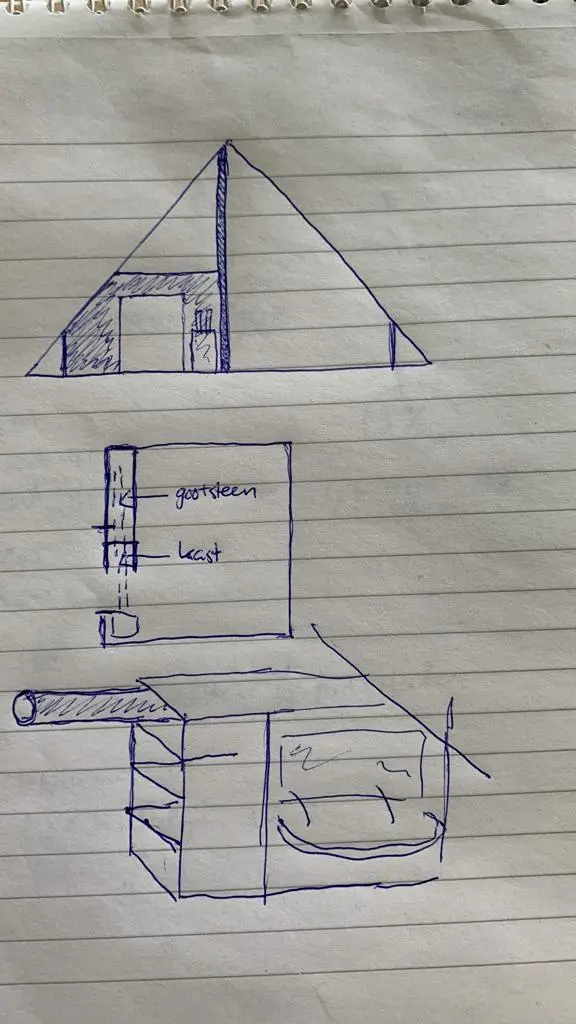 gootsteen
kast